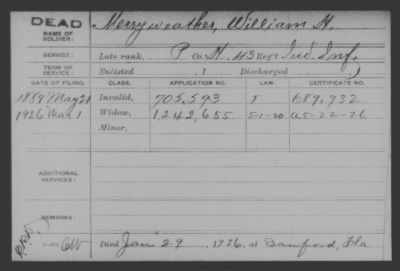 DEAD Merryweather, William H.
NAME OF
SOLDIER:
SERVICE: Late rank, P Co. H, 43 Reg't Ind. Inf.
TERM OF
SERVICE: Enlisted , 1 Discharged , 1
DATE OF FILING. CLASS. APPLICATION NO. LAW. CERTIFICATE NO.
1889 May 24 Invalid, 705,593 J 689,932
1926 Mar 1 Widow, 1,242,655 5-1-20 A 5-22-26
Minor,
ADDITIONAL
SERVICES:
REMARKS:
Died Jan 29 1926, at Sanford, Fla